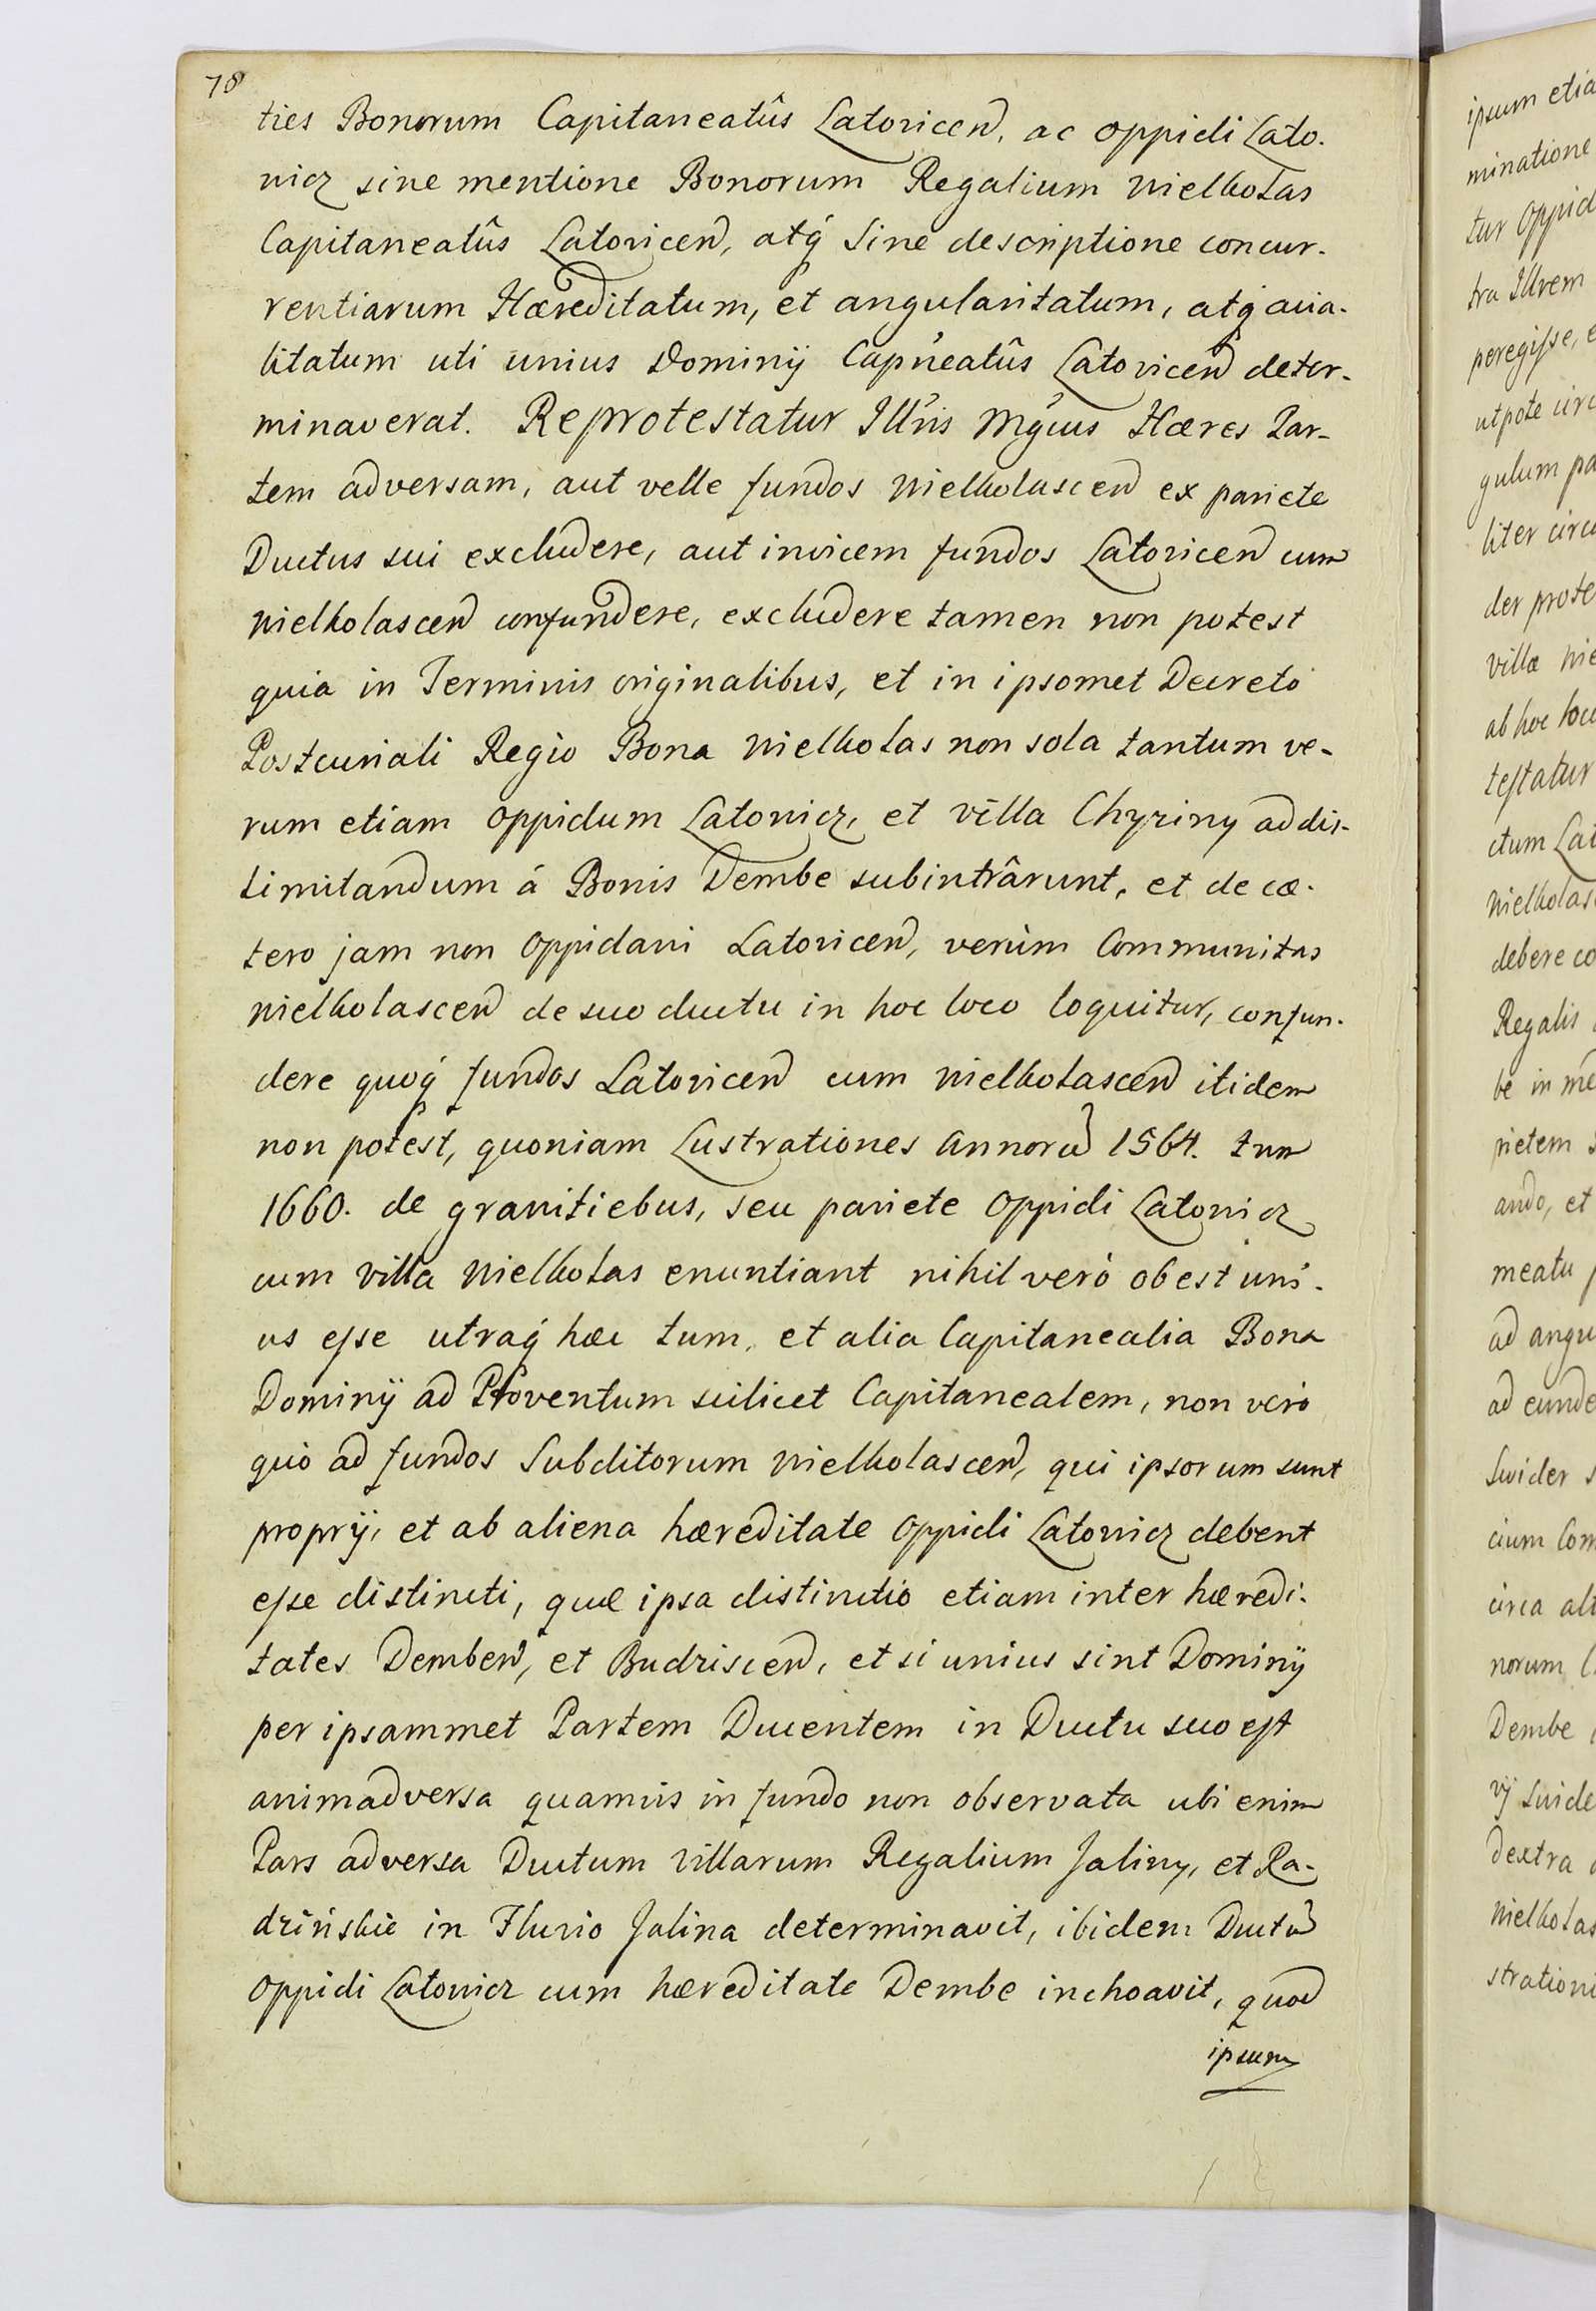 78
ties Bonorum Capitaneatûs Latovicen̄, ac oppidi Lato-
vicz sine mentione Bonorum Regalium Wielkolas
Capitaneatûs Latovicen̄, atq́ Sine descriptione concur-
rentiarum Hæreditatum, et angularitatum, atq́ aua-
litatum uti unius Dominÿ Capńeatûs Latovicen̄ deter-
minaverat. Reprotestatur Illris Mgcus Hæres Par-
tem adversam, aut velle fundos Wielkolascen̄ ex pariete
Ductus sui excludere, aut invicem fundos Latovicen̄ cum
Wielkolascen̄ confundere, excludere tamen non potest
quia in Terminis originalibus, et in ipsomet Decreto
Postcuriali Regio Bona Wielkolas non sola tantum ve-
rum etiam oppidum Latovicz, et villa Chyziny ad dis-
limitandum á Bonis Dembe subintrârunt, et de cæ-
tero jam non Oppidani Latovicen̄, verùm Communitas
Wielkolascen̄ de suo ductu in hoc loco loquitur, confun-
dere quoq́ fundos Latovicen̄ cum Wielkolascen̄ itidem
non potest, quoniam Lustrationes Annorū 1564. tum
1660. de granitiebus, seu pariete Oppidi Latovicz
cum villa Wielkolas enuntiant nihil verò obest uni-
us esse utraq́ hæc tum, et alia Capitanealia Bona
Dominÿ ad Proventum scilicet Capitanealem, non verò
quò ad fundos Subditorum Wielkolascen̄, qui ipsorum sunt
proprÿ, et ab aliena hæreditate Oppidi Latovicz debent
esse distincti, quæ ipsa distinctio etiam inter hæredi-
tates Demben̄, et Budziscen̄, et si unius sint Dominÿ
per ipsammet Partem Ducentem in Ductu suo est
animadversa quamvis in fundo non observata ubi enim
Pars adversa Ductum Villarum Regalium Jaliny, et Ra-
dzińskie in Fluvio Jalina determinavit, ibidem Ductū
Oppidi Latovicz cum hæreditate Dembe inchoavit, quod
ipsum
ipsum etia
minatione
tur Oppid
tra Illrem
peregisse, e
utpote circ
gulum pa
liter circu
der prote
villæ Wie
ab hoc loco
testatur
ctum Lat
Wielkolas
debere co
Regalis
be in me
rietem
ando, et
meatu
ad angu
ad eunde
Swider s
cium Com
circa alt
norum
Dembe
vÿ Swide
dextra
Wielkolas
strationi